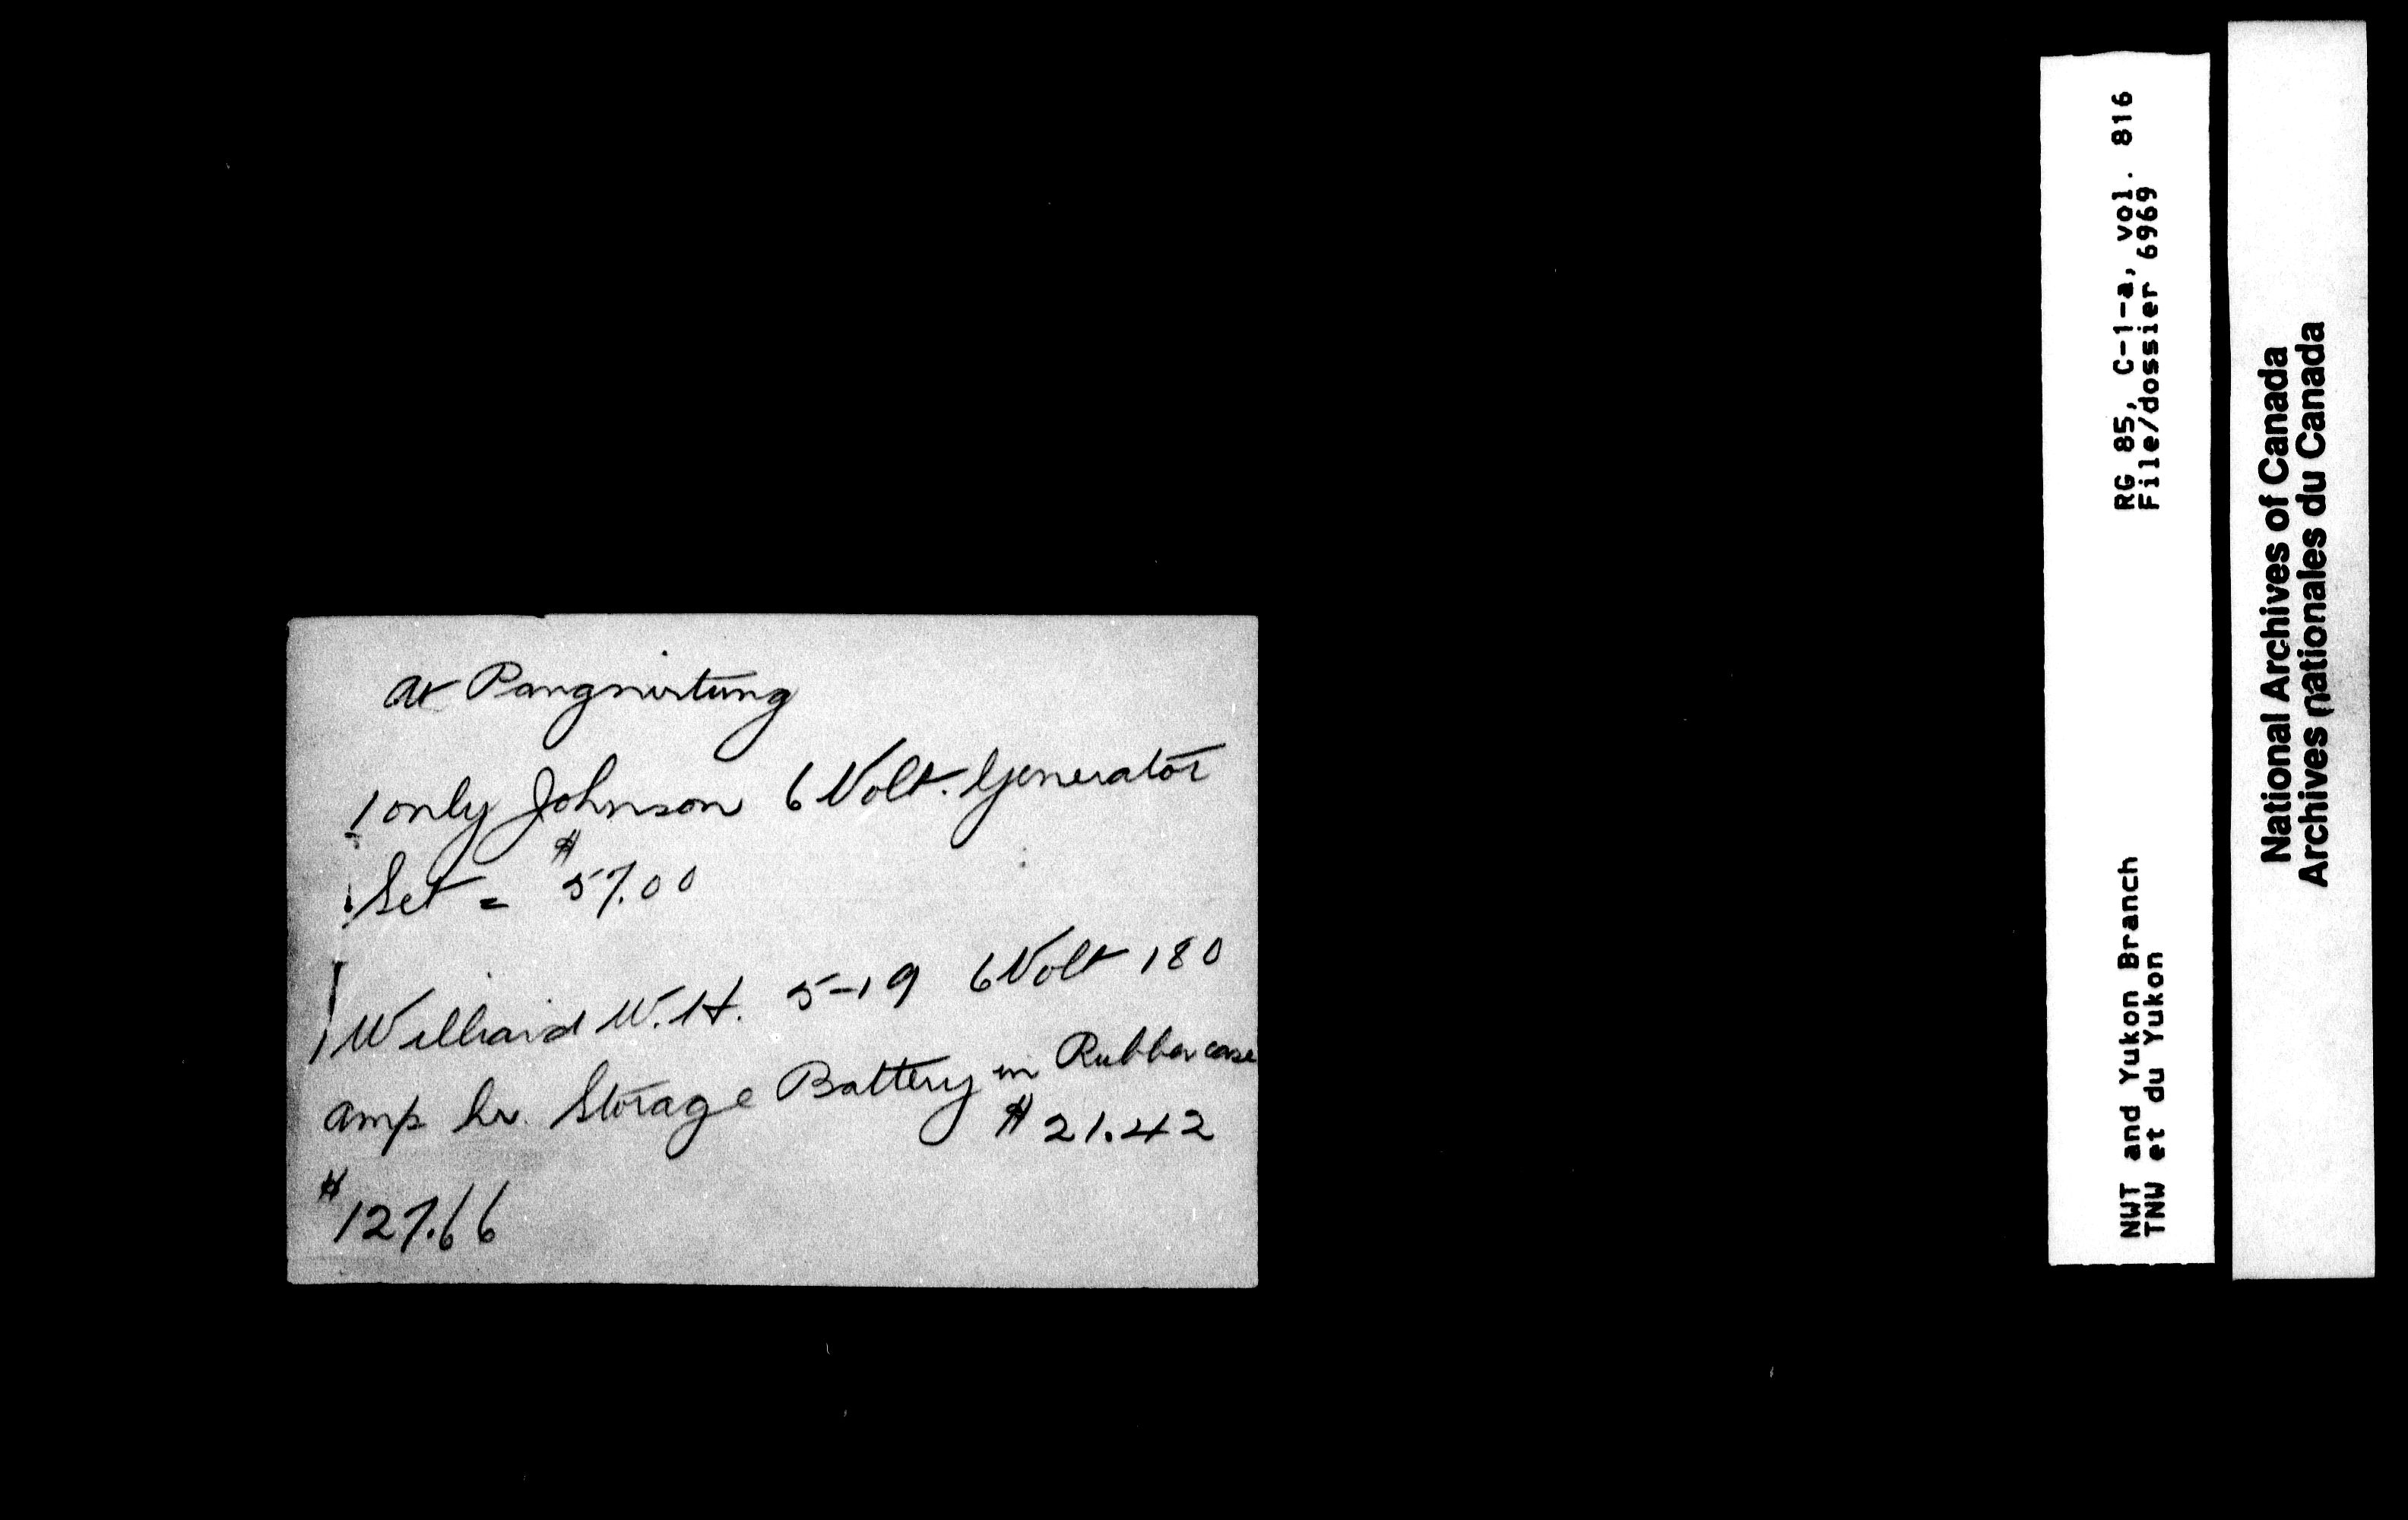 at Pangnirtung
1 only Johnson 6 Volt. Generator
Set = $57.00
1 Williard W.H. 5-19 6 Volt 180
amp hr. Storage Battery in Rubber case
$21.42
$127.66
RG 85, C-1-a, vol. 816
File/dossier 6969
NWT and Yukon Branch
TNW et du Yukon
National Archives of Canada
Archives nationales du Canada